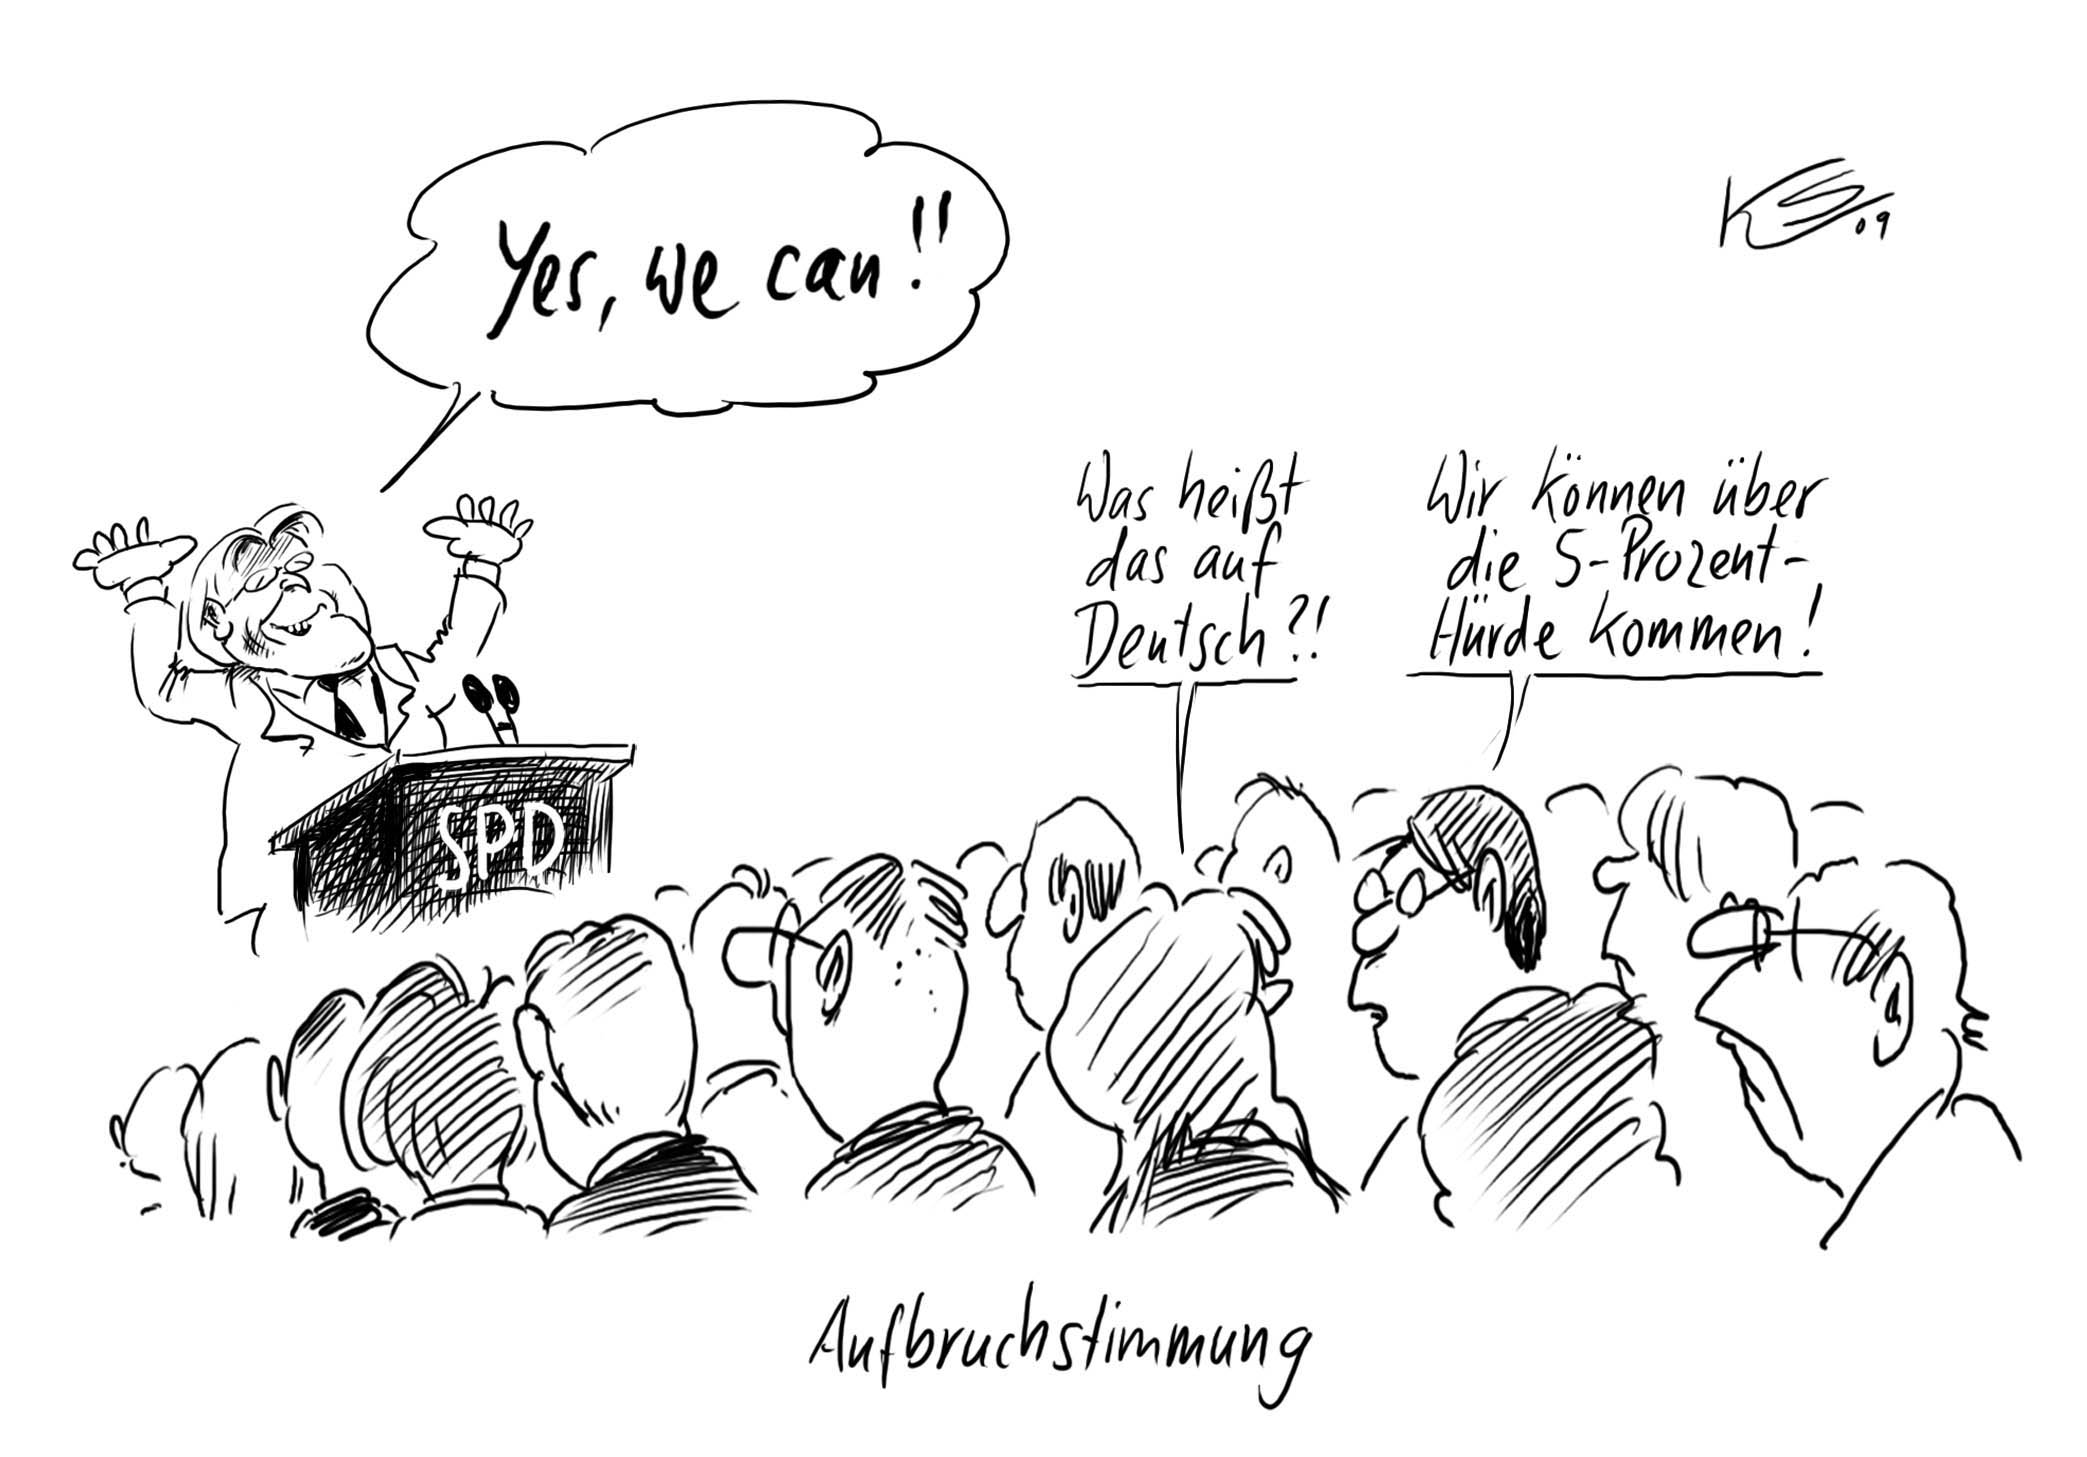 Yes, we can!!
Was heißt
das auf
Deutsch?!
Wir können über
die 5-Prozent-
Hürde kommen!
SPD
Aufbruchstimmung
09